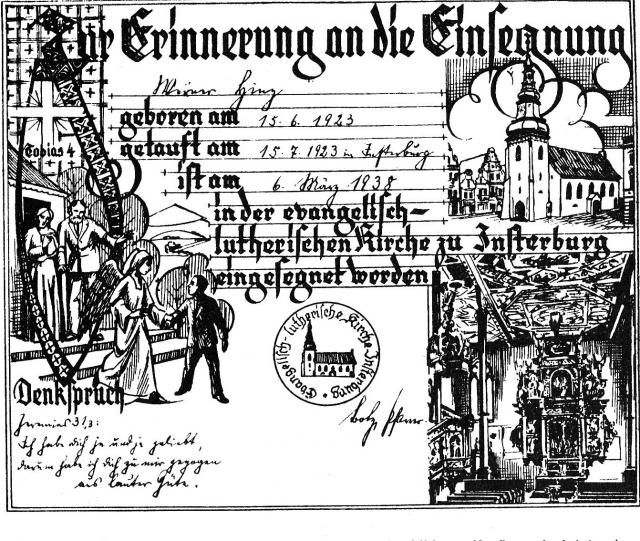 Zur Erinnerung an die Einsegnung
Werner Hinz
geboren am 15. 6. 1923
getauft am 15. 7. 1923 in Insterburg
ist am 6. März 1938
in der evangelisch-
lutherischen Kirche zu Insterburg
eingesegnet worden
Tobias 4
Evangelisch-lutherische Kirche Insterburg
Denkspruch
Jeremias 31,3:
Ich habe dich je und je geliebt,
darum habe ich dich zu mir gezogen
aus lauter Güte.